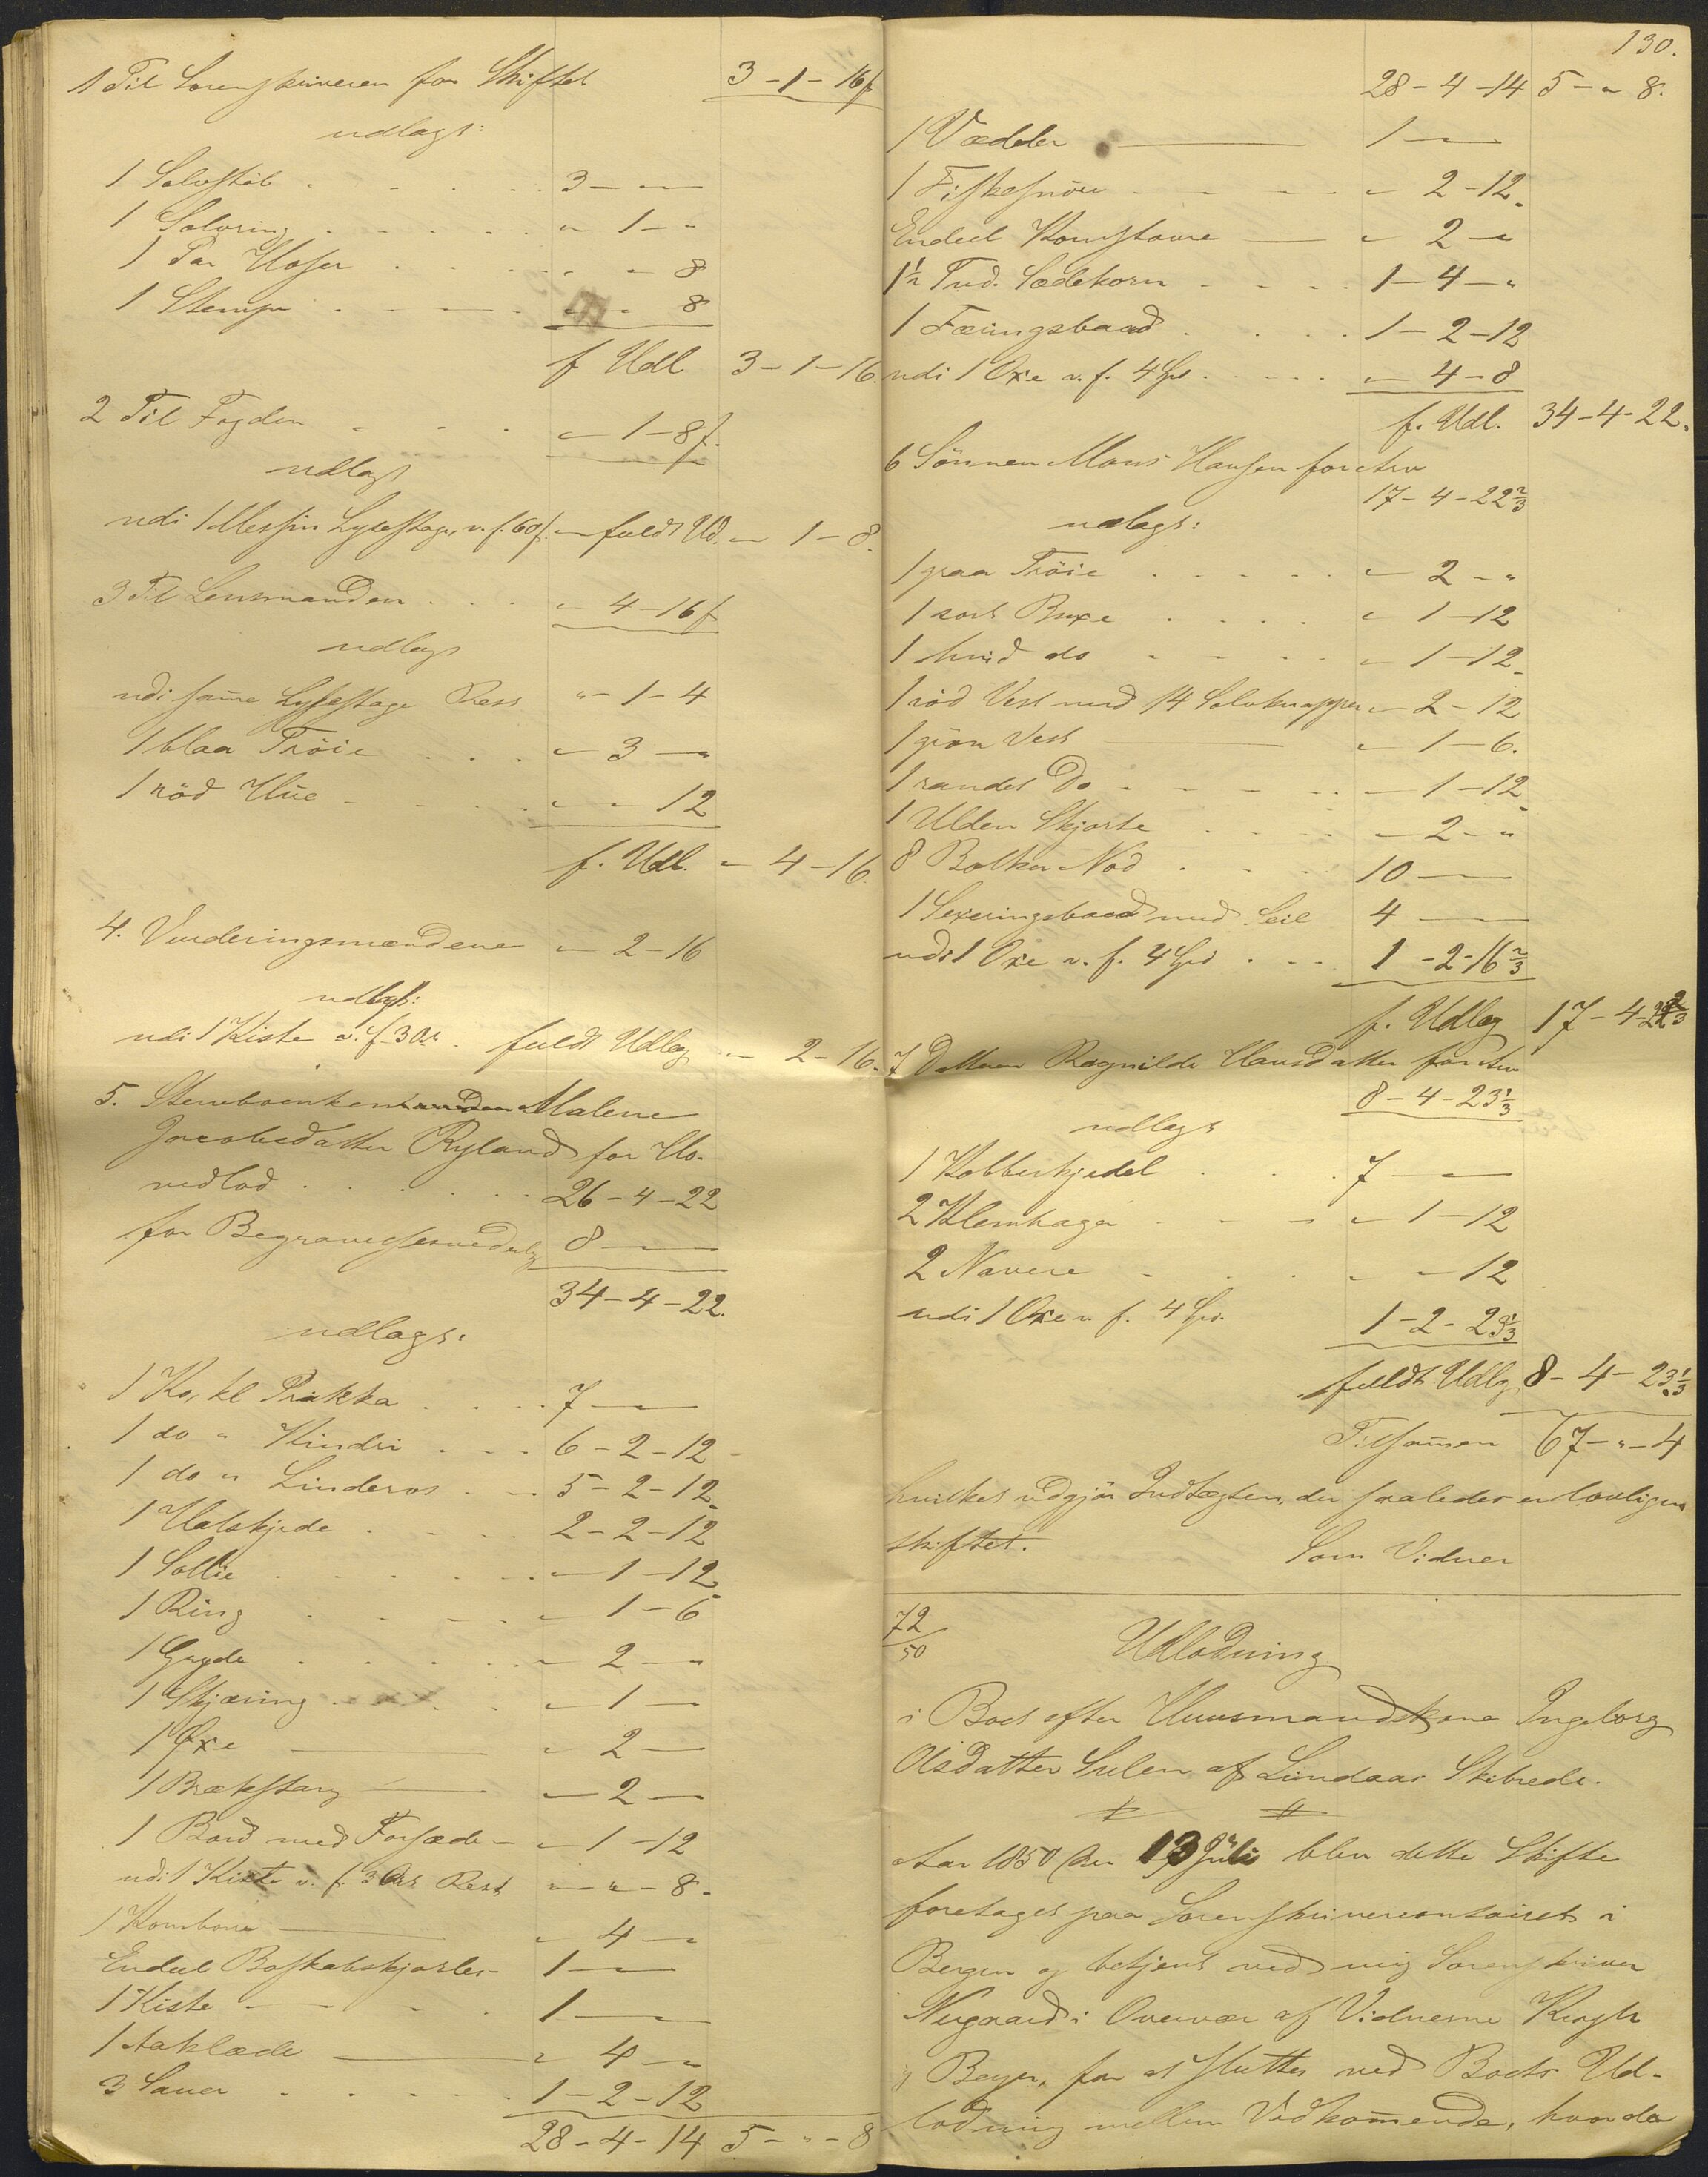 1 Til Sorenskriveren for Skiftet 3-1-16 f
udlagt:
1 Sølvstøb . . . 3-"-"
1 Sølvring . . . "-1-"
1 Par Hoser . . . "-"-8
1 Stempr . . . "-"-8
f Udl 3-1-16.
2 Til Fogden - - . "-1-8 f.
udlagt
udi 1 Messin Lysestage, v. f. 60 f. - fuldt Ud. "-1-8.
3 Til Lensmanden . . . "-4-16 f
udlagt
udi same Lysestage Rest "-1-4
1 blaa Trøie . . . "-3-"
1 rød Hue - . . . "-"-12
f. Udl. "-4-16
4. Vurderingsmændene "-2-16
udlagt:
udi 1 Kiste v. f. 3 Ort . fuldt Udlæg "-2-16.
5. Malene
Jacobsdatter Ryland for Ho-
vedlod . . . . . . 26-4-22
for Begravelsesvederlg 8-"-"
34-4-22.
udlagt:
1 Ko, kl Prikka . . . 7-"-"
1 do " Kindri . . . 6-2-12-
1 do " Linderos . . . 5-2-12.
1 Halskjede . . . . 2-2-12
1 Søllie . . . . "-1-12.
1 Ring . . . . "-1-6
1 Gryde . . . . "-2-"
1 Skjæring . . . . "-1-"
1 Øxe "-2-"
1 Brækstang "-2-"
1 Bord med Forsæde - "-1-12
udi 1 Kiste v. f. 3 Ort Rest "-"-8.
1 Kornbøre "-4-"
Endeel Boskabskjørler- 1-"-"
1 Kiste - - - . 1-"-"
1 Aaklæde "-4-"
3 Sauer . . . . 1-2-12
28-4-14 5-"-8
130.
28-4-14 5-"-8.
1 Vædder 1-"-"
1 Fiskesnøre - - - "-2-12.
Endeel Kornstaure "-2-"
1½ Tnd. Sædekorn - . . . 1-4-"
1 Færingsbaad . . . . 1-2-12
udi 1 Oxe v. f. 4 Spd . . . "-4-8
f. Udl. 34-4-22.
6 Sønnen Mons Hansen for Arv
17-4-22⅔
udlagt:
1 graa Trøie . . . . "-2-"
1 sort Buxe . . . . "-1-12
1 hvid do - - - - "-1-12.
1 rød Vest med 14 Sølvknapper "-2-12
1 grøn Vest "-1-6.
1 randet Do - - - - "-1-12.
1 Ulden Skjorte . . . "-2-"
8 Bolker Nod . . . 10-"-"
1 Sexeringsbaad med Seil 4-"-"
udi 1 Oxe v. f. 4 Spd . . . 1-2-16⅔
f. Udlæg 17-4-22⅔
7 Datteren Ragnilde Hansdatter for Arv
8-4-23⅓
udlagt
1 Kobberkjedel . . . 7-"-"
2 Klemhager - - - "-1-12
2 Navere - . . "-"-12
udi 1 Oxe v. f. 4 Spd. 1-2-23⅓
fuldt Udlg 8-4-23⅓
Tilsamen 67-"-4
hvilket udgjør Indtægten, der saaledes er lovligen
skiftet. Som Vidner
72/50 Udlodning
i Boet efter Huusmandskone Ingeborg
Olsdatter Sulen af Lindaas Skibrede.
Aar 1850 den 13 Juli blev dette Skifte
foretaget paa Sorenskrivercontoiret i
Bergen og betjent ved mig Sorenskriver
Nygaard i Overvær af Vidnerne Krogh
og Beyer, for at sluttes ved Boets Ud-
lodning mellem Vedkomende, hvor da